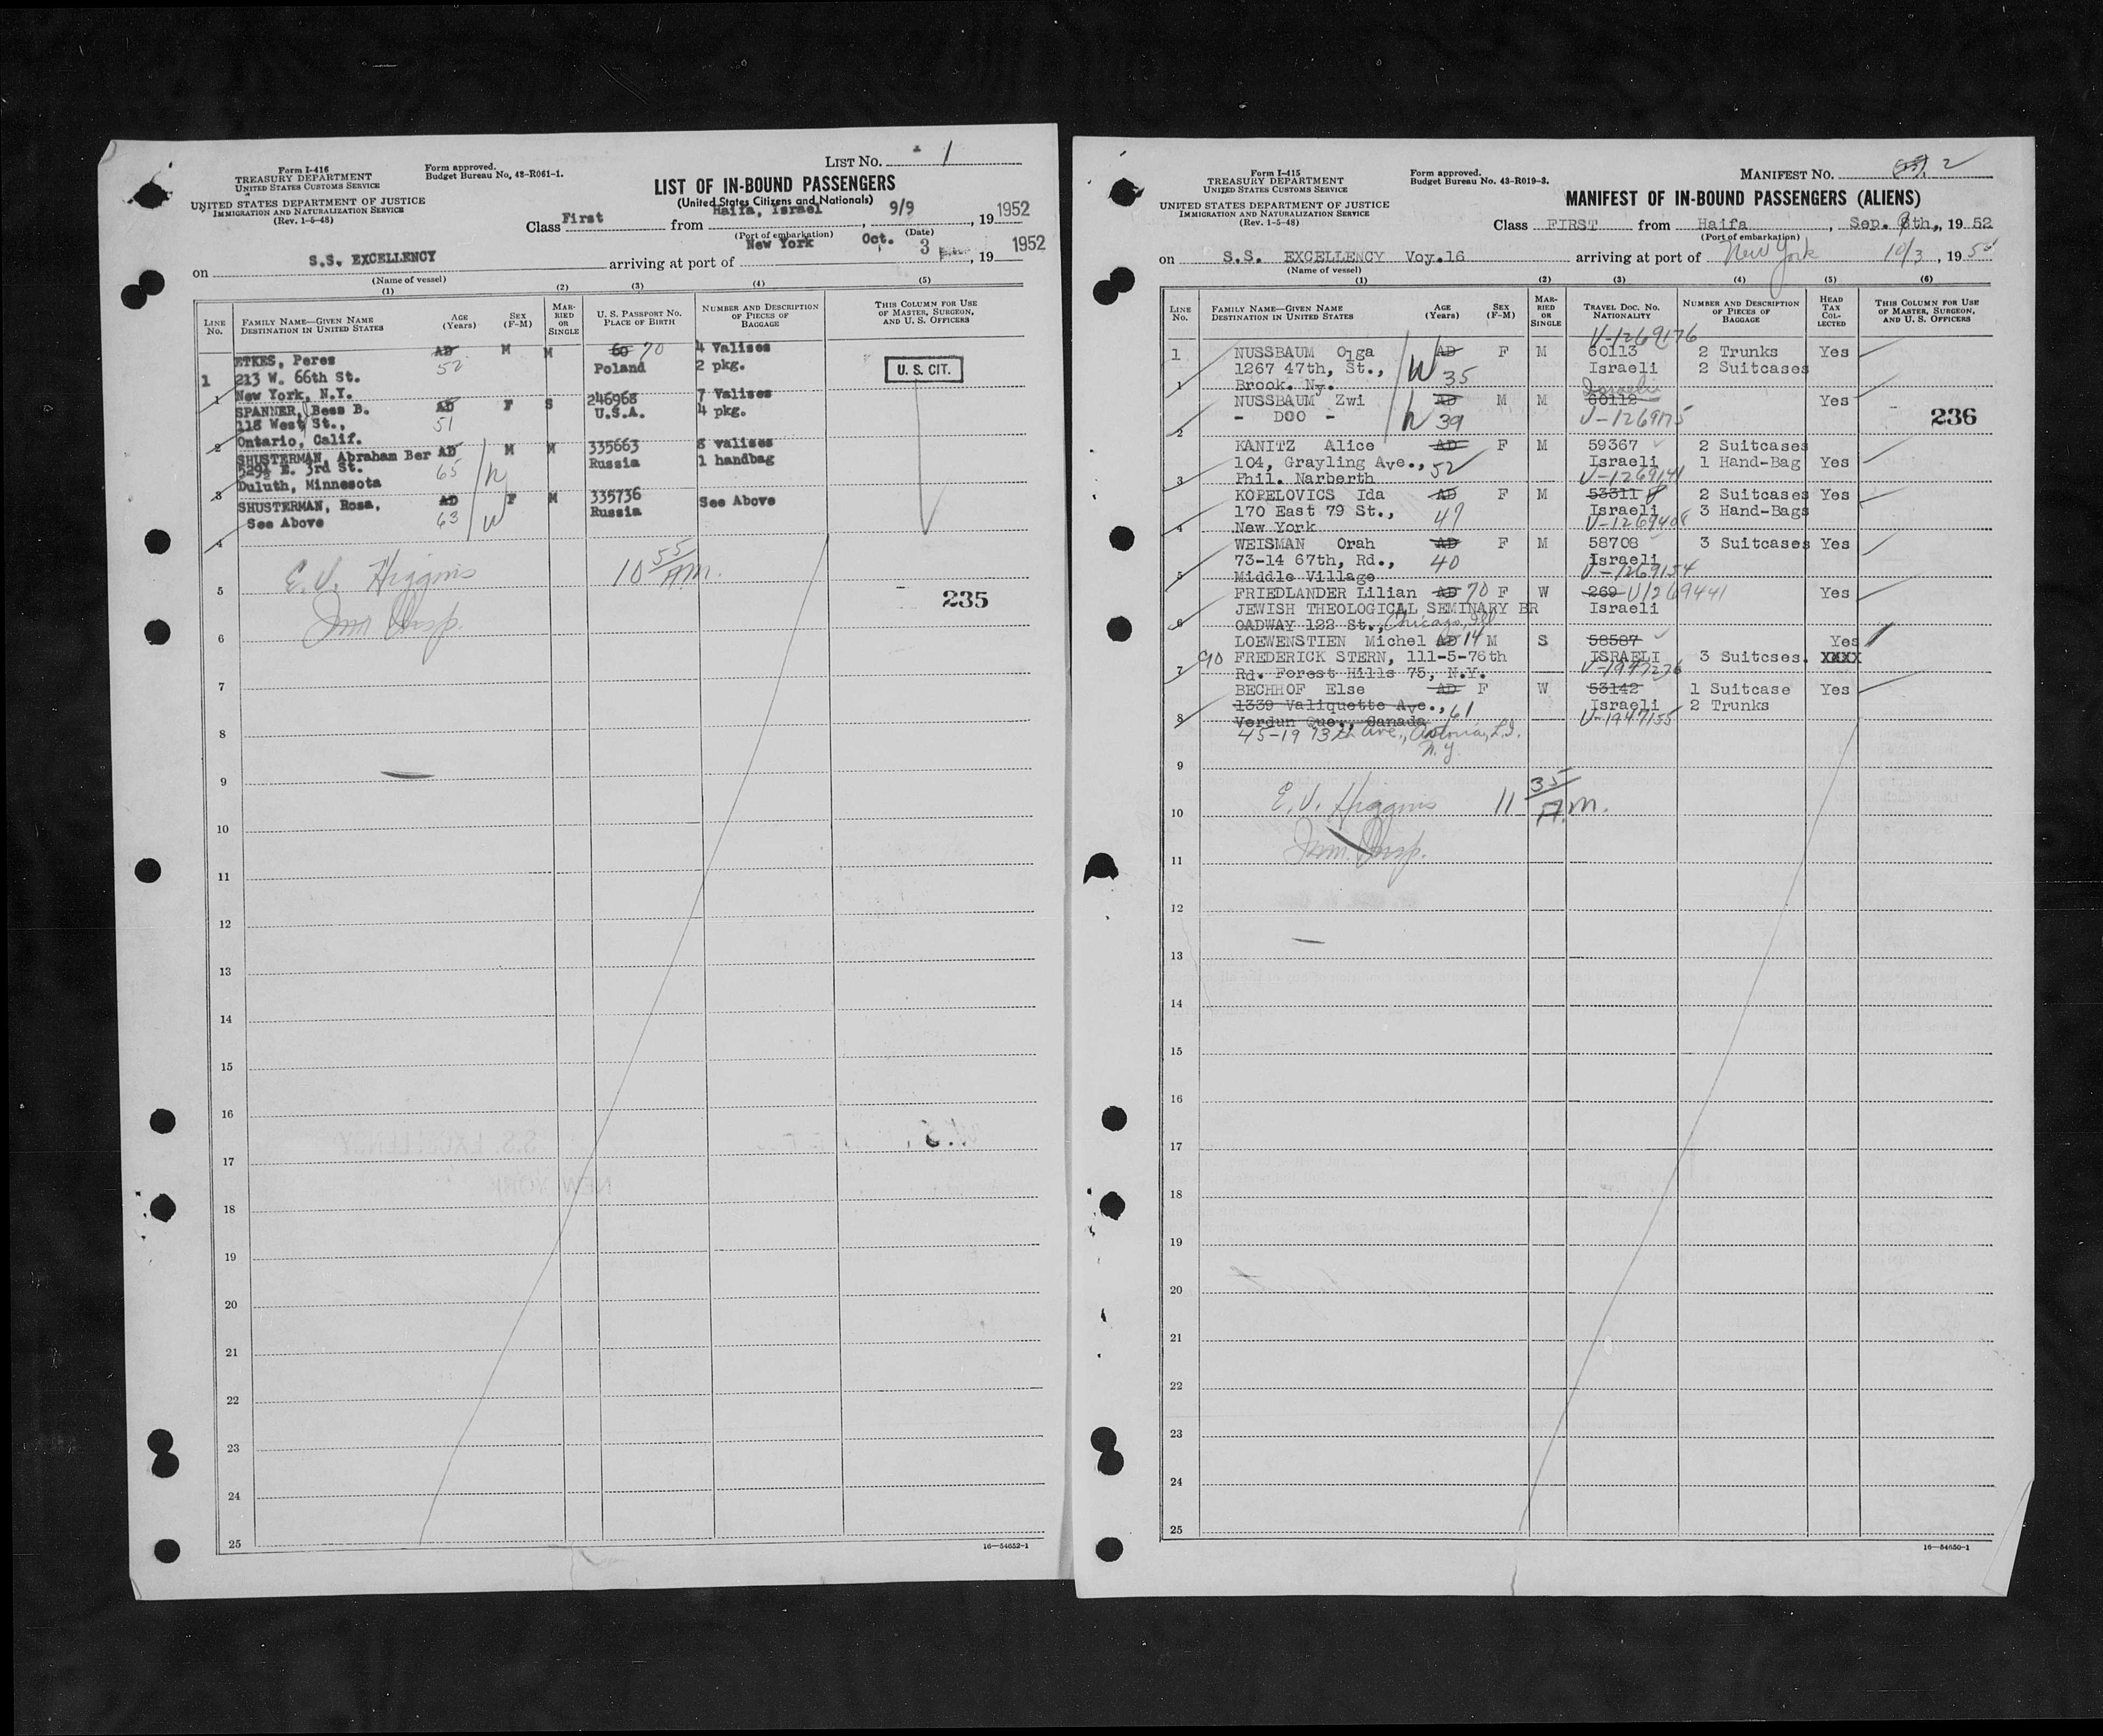 Form I-416
TREASURY DEPARTMENT
UNITED STATES CUSTOMS SERVICE
UNITED STATES DEPARTMENT OF JUSTICE
IMMIGRATION AND NATURALIZATION SERVICE
(Rev. 1-5-48)
Form approved.
Budget Bureau No. 43-R061-1.
LIST NO. 1
LIST OF IN-BOUND PASSENGERS
(United States Citizens and Nationals)
Class First from Haifa, Israel, 9/9, 19 1952
(Port of embarkation) (Date)
on S.S. EXCELLENCY arriving at port of New York Oct. 3, 19 1952
(Name of vessel)
(1) (2) (3) (4) (5)
LINE No. FAMILY NAME—GIVEN NAME DESTINATION IN UNITED STATES AGE (Years) SEX (F-M) MARRIED OR SINGLE U. S. PASSPORT NO. PLACE OF BIRTH NUMBER AND DESCRIPTION OF PIECES OF BAGGAGE THIS COLUMN FOR USE OF MASTER, SURGEON, AND U. S. OFFICERS
1 ETKES, Peres AD M M 60 70 4 Valises
213 W. 66th St. 52 Poland 2 pkg. U. S. CIT.
New York, N.Y.
1
SPANNER, Bess B. AD F S 246968 7 Valises
118 West St., 51 U.S.A. 4 pkg.
Ontario, Calif.
2
SHUSTERMAN, Abraham Ber AD M M 335663 8 valises
529½ E. 3rd St. 65 h Russia 1 handbag
Duluth, Minnesota
3
SHUSTERMAN, Rosa, AD F M 335736 See Above
See Above 63 w Russia
4
E. V. Higgins 10 55 A.M.
5
Imm Insp.
235
6
7
8
9
10
11
12
13
14
15
16
17
18
19
20
21
22
23
24
25
16—54652-1
Form I-415
TREASURY DEPARTMENT
UNITED STATES CUSTOMS SERVICE
UNITED STATES DEPARTMENT OF JUSTICE
IMMIGRATION AND NATURALIZATION SERVICE
(Rev. 1-5-48)
Form approved.
Budget Bureau No. 43-R019-3.
MANIFEST NO. 2
MANIFEST OF IN-BOUND PASSENGERS (ALIENS)
Class FIRST from Haifa, Sep. 9th., 19 52
(Port of embarkation)
on S.S. EXCELLENCY Voy.16 arriving at port of New York 10/3, 19 52
(Name of vessel)
(1) (2) (3) (4) (5) (6)
LINE No. FAMILY NAME—GIVEN NAME DESTINATION IN UNITED STATES AGE (Years) SEX (F-M) MARRIED OR SINGLE TRAVEL DOC. NO. NATIONALITY NUMBER AND DESCRIPTION OF PIECES OF BAGGAGE HEAD TAX COLLECTED THIS COLUMN FOR USE OF MASTER, SURGEON, AND U. S. OFFICERS
V-1269176
1 NUSSBAUM Olga AD F M 60113 2 Trunks Yes
1267 47th, St., W 35 Israeli 2 Suitcases
Brook. Ny. Israeli
1
NUSSBAUM Zwi AD M M 60112 Yes
- DOO - h 39 V-1269175
236
2
KANITZ Alice AD F M 59367 2 Suitcases
104, Grayling Ave., 52 Israeli 1 Hand-Bag Yes
Phil. Narberth V-1269141
3
KOPELOVICS Ida AD F M 53311 2 Suitcases Yes
170 East 79 St., 49 Israeli 3 Hand-Bags
New York V-1269408
4
WEISMAN Orah AD F M 58708 3 Suitcases Yes
73-14 67th, Rd., 40 Israeli
Middle Village V-1269154
5
FRIEDLANDER Lilian AD 70 F W 269 V1269441 Yes
JEWISH THEOLOGICAL SEMINARY BR Israeli
OADWAY 122 St., Chicago, Ill
6
LOEWENSTIEN Michel AD 14 M S 58587 Yes
c/o FREDERICK STERN, 111-5-76th ISRAELI 3 Suitcses. XXXX
Rd. Forest Hills 75, N.Y. V-1947276
7
BECHHOF Else AD F W 53142 1 Suitcase Yes
1339 Valiquette Ave., 61 Israeli 2 Trunks
Verdun Que., Canada V-1947155
8
45-19 73th Ave., Astoria, L.I.
N.Y
9
E. V. Higgins 11 35 A.M.
10
Imm. Insp.
11
12
13
14
15
16
17
18
19
20
21
22
23
24
25
16—54650-1